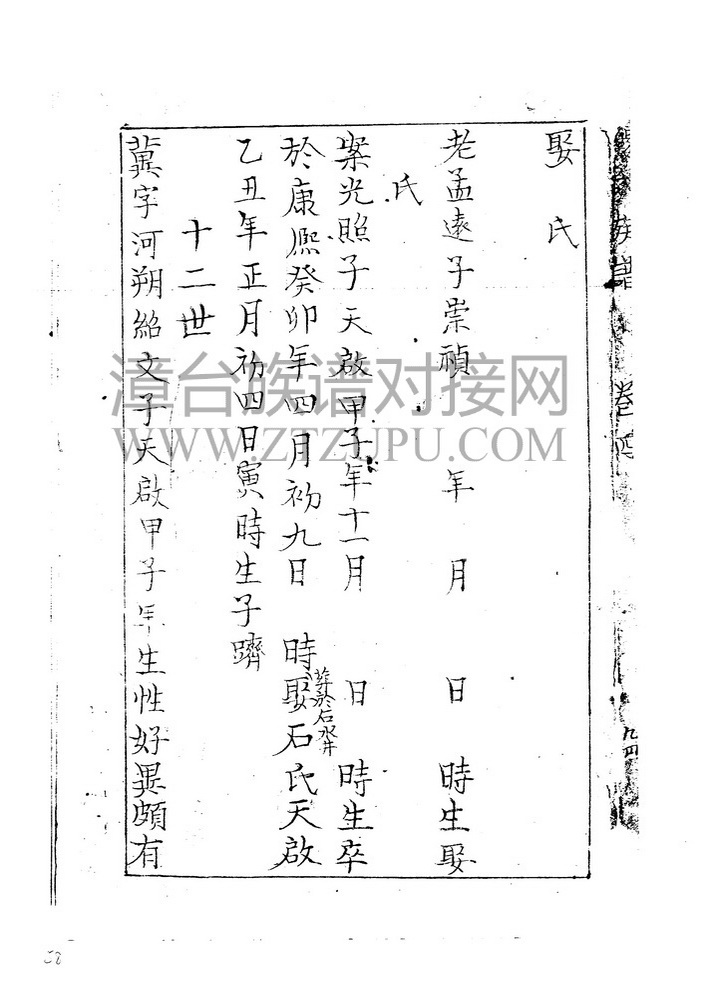 娶　氏
老孟遠子崇禎　年　月　日　時生娶
氏
案光照子天啟甲子年十一月　日　時生卒
於康熈癸卯年四月初九日　時娶石氏天啟
葬於石水井
乙丑年正月初四日寅時生子躋
十二世
冀字河朔紹文子天啟甲子年生性好異頗有
族譜　卷
九四
漳台族谱对接网
WWW.ZTZUPU.COM
58